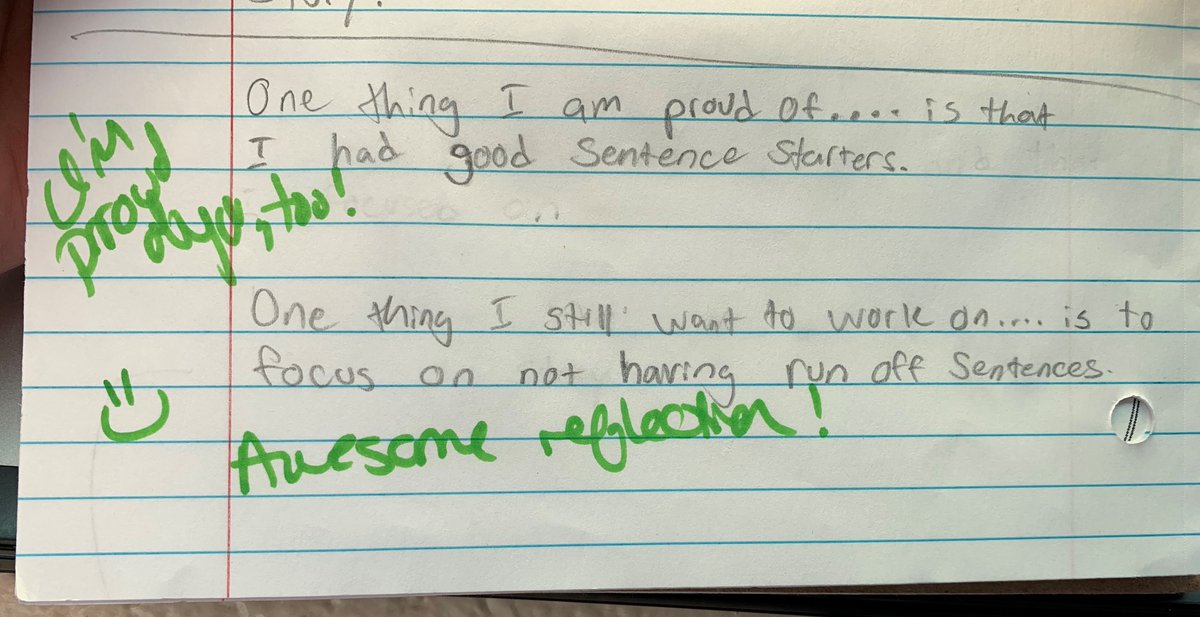 One thing I am proud of.... is that
I had good Sentence Starters.
I'm
proud
of you, too!
One thing I still want to work on.... is to
focus on not having run off Sentences.
Awesome reflection!